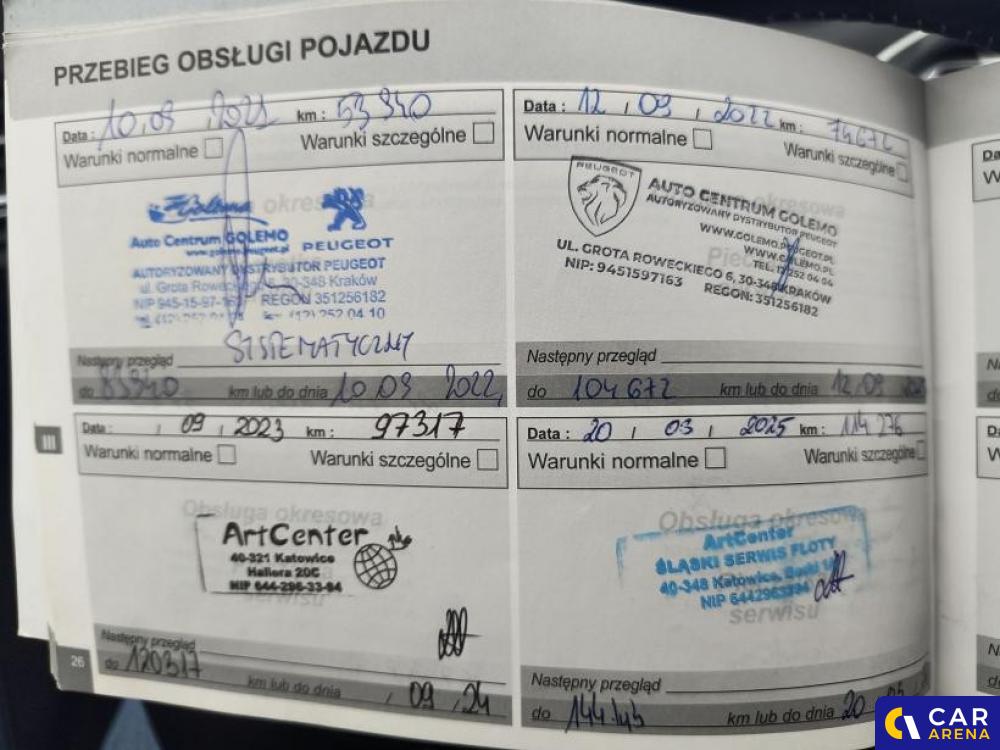 PRZEBIEG OBSŁUGI POJAZDU
Data : 10.09 .2021 km : 53 940
Warunki normalne Warunki szczególne
Auto Centrum GOLEMO
PEUGEOT
AUTORYZOWANY DYSTRYBUTOR PEUGEOT
30-348 Kraków
NIP 945-15-97-
REGON 351256182
(12) 252 04 10
SYSTEMATYCZNY
Następny przegląd
do 83940 km lub do dnia 10 09 2022
Data : 12 , 09 , 2022 km : 74672
Warunki normalne Warunki szczególne
PEUGEOT
AUTO CENTRUM GOLEMO
AUTORYZOWANY DYSTRYBUTOR PEUGEOT
WWW.GOLEMO.PEUGEOT.PL
WWW.GOLEMO.PL
TEL. 12 252 04 04
UL. GROTA ROWECKIEGO 6, 30-348 KRAKÓW
NIP: 9451597163 REGON: 351256182
Następny przegląd
do 104672 km lub do dnia 12 .09
III
Data : , 09 , 2023 km : 97317
Warunki normalne Warunki szczególne
Obsługa okresowa
ArtCenter
40-321 Katowice
Hallera 20C
NIP 644-296-33-94
serwisu
Następny przegląd
do 120317 km lub do dnia , 09 , 24
Data : 20 , 03 , 2025 km : 114 276
Warunki normalne Warunki szczególne
Obsługa okresowa
ArtCenter
ŚLĄSKI SERWIS FLOTY
40-348 Katowice,
NIP 6442963394
serwisu
Następny przegląd
do km lub do dnia 20
26
CAR
ARENA